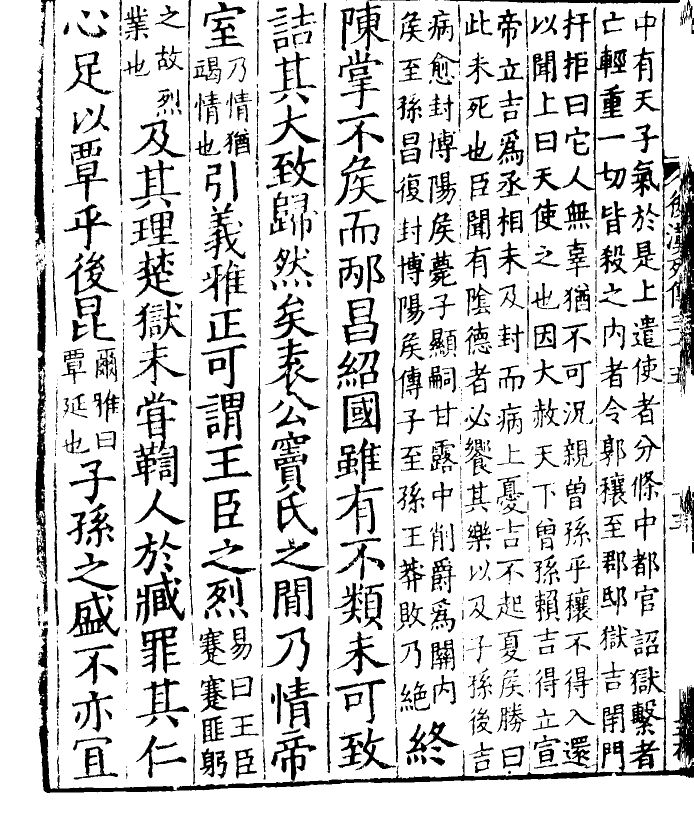 後漢列傳
中有天子氣於是上遣使者分條中都官詔獄繫者
亡輕重一切皆殺之內者令郭穰至郡邸獄吉閉門
扞拒曰它人無辜猶不可況親曾孫乎穰不得入還
以聞上曰天使之也因大赦天下曾孫賴吉得立宣
帝立吉爲丞相未及封而病上憂吉不起夏侯勝曰
此未死也臣聞有陰德者必饗其樂以及子孫後吉
病愈封博陽侯薨子顯嗣甘露中削爵爲關內
侯至孫昌復封博陽侯傳子至孫王莽敗乃絕終
陳掌不侯而邴昌紹國雖有不類未可致
詰其大致歸然矣袁公竇氏之閒乃情帝
室乃情猶竭情也引義雅正可謂王臣之烈易曰王臣蹇蹇匪躬
之故烈業也及其理楚獄未甞鞫人於臧罪其仁
心足以覃乎後昆爾雅曰覃延也子孫之盛不亦宜